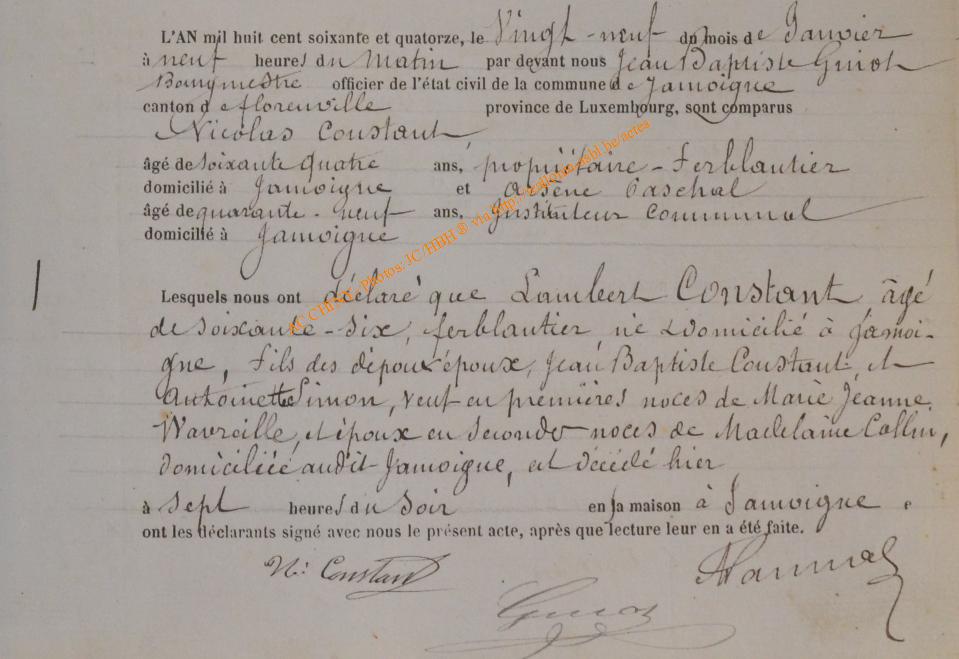 L'AN mil huit cent soixante et quatorze, le Vingt-neuf du mois de Janvier
à neuf heures du Matin par devant nous Jean Baptiste Guiot
Bourgmestre officier de l'état civil de la commune de Jamoigne
canton de florenville province de Luxembourg, sont comparus
Nicolas Constant,
âgé de soixante quatre ans, propriétaire-Ferblantier
domicilié à Jamoigne et Arsène Paschal
âgé de quarante-neuf ans, Instituteur Communal
domicilié à Jamoigne
Lesquels nous ont déclaré que Lambert Constant âgé
de soixante-six, ferblantier, né & domicilié à Jamoi-
gne, Fils des époux, Jean Baptiste Constant, et
Antoinette Simon, veuf en premières noces de Marie Jeanne
Wavreille, et époux en secondes noces de Madelaine Collin,
domiciliée audit Jamoigne, est décédé hier
à sept heures du soir en sa maison à Jamoigne e
ont les déclarants signé avec nous le présent acte, après que lecture leur en a été faite.
N: Constant
Guiot
AC CHINY - Photos: JC/HBH ® via http://
asbl.be/actes